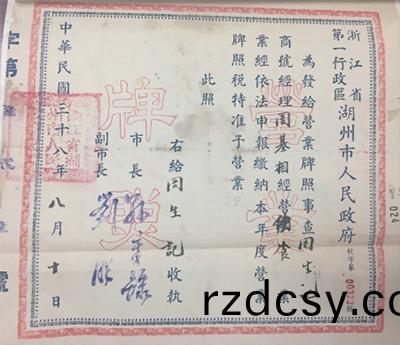 浙江省
第一行政區
湖州市人民政府
為發給營業牌照事查周生
商號經理周基相經營 食 業
業經依法申報繳納本年度營業
牌照税特准予營業
此照
右給周生記收執
市長
副市長
中華民國三十八年八月十日
營業
牌照
字第
號
024
rzdcsy.com